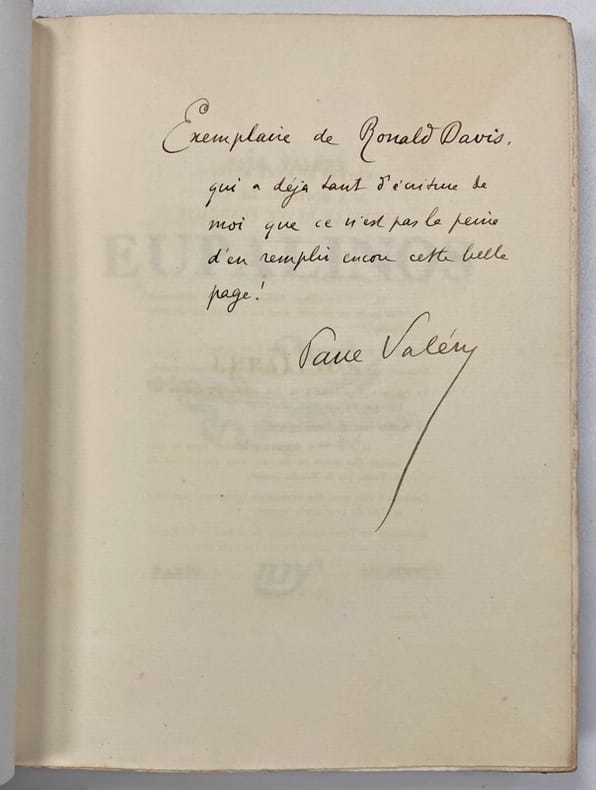 Exemplaire de Ronald Davis,
qui a déjà tant d'écriture de
moi que ce n'est pas la peine
d'en remplir encore cette belle
page!
Paul Valéry
EUPALINOS